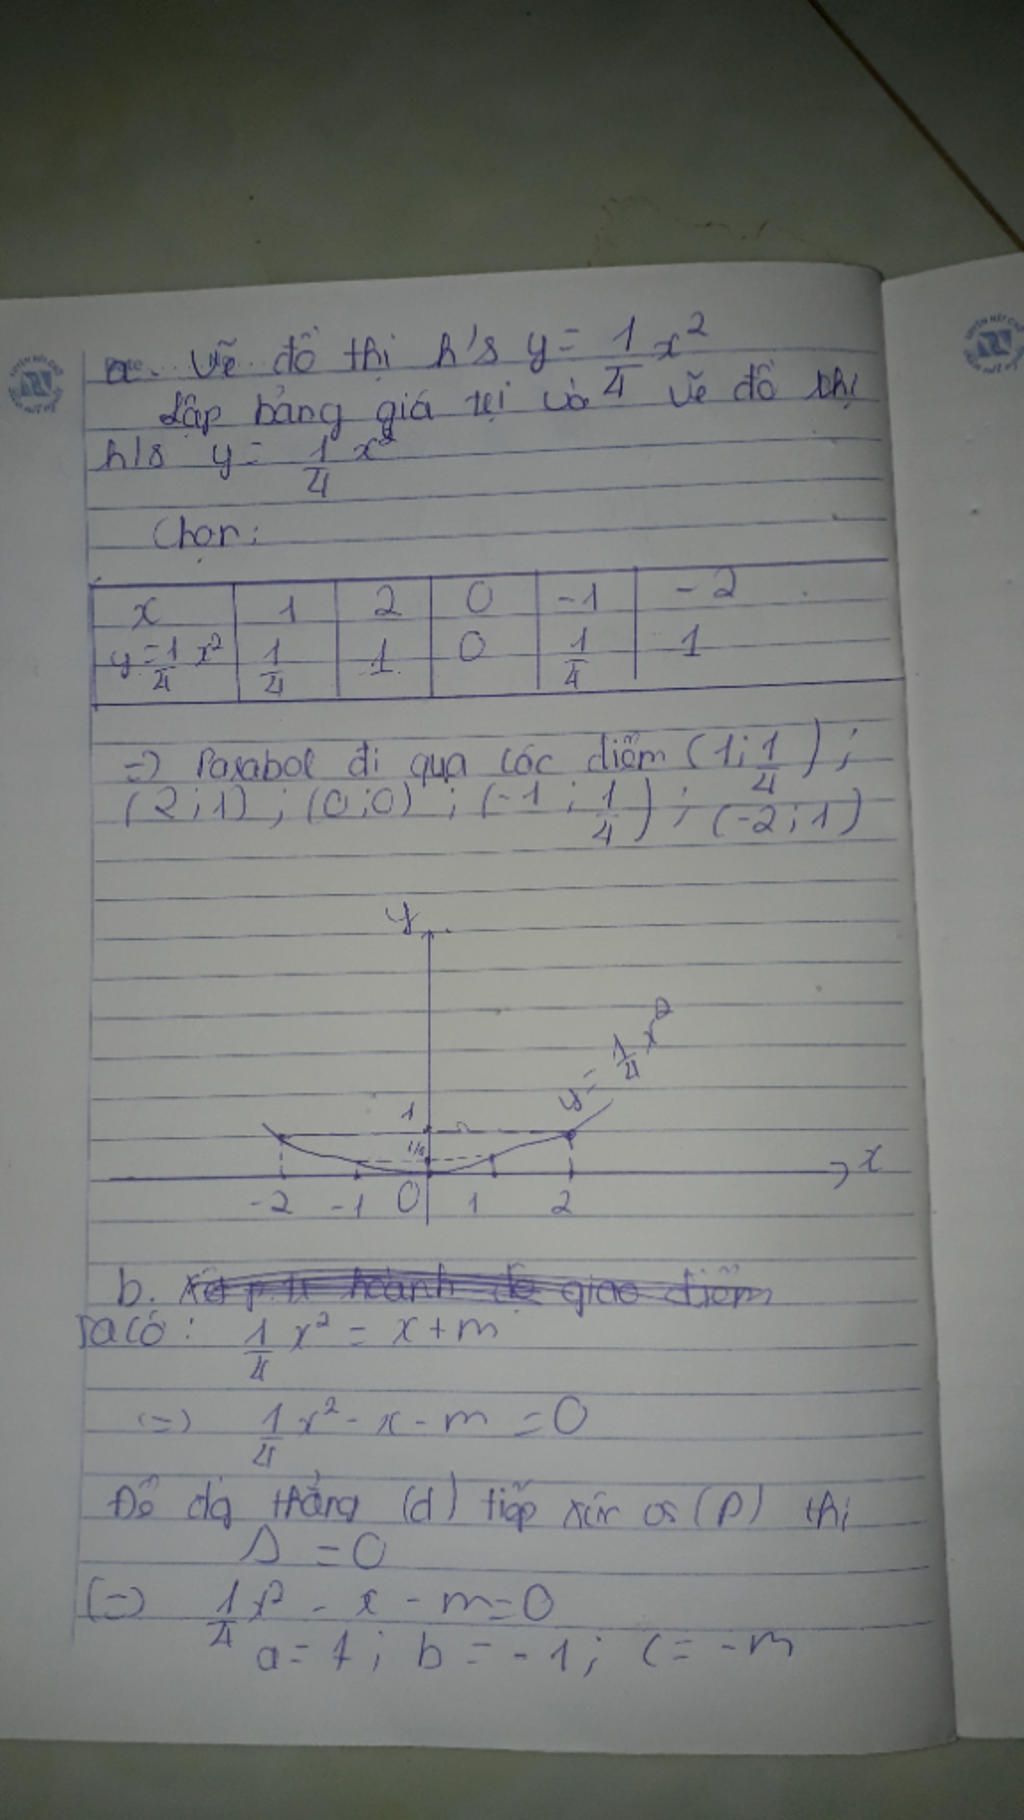 a. Vẽ đồ thị h/s y = 1/4 x²
Lập bảng giá trị và vẽ đồ thị
h/s y = 1/4 x²
Chọn:
x 1 2 0 -1 -2
y = 1/4 x² 1/4 1 0 1/4 1
=) Parabol đi qua các điểm (1; 1/4);
(2;1); (0;0); (-1; 1/4); (-2;1)
y
y = 1/4 x²
1
1/4
x
-2 -1 0 1 2
b.
Ta có: 1/4 x² = x + m
(=) 1/4 x² - x - m = 0
Để dg thẳng (d) tiếp xúc (P) thì
Δ = 0
(=) 1/4 x² - x - m = 0
a = 1; b = -1; c = -m